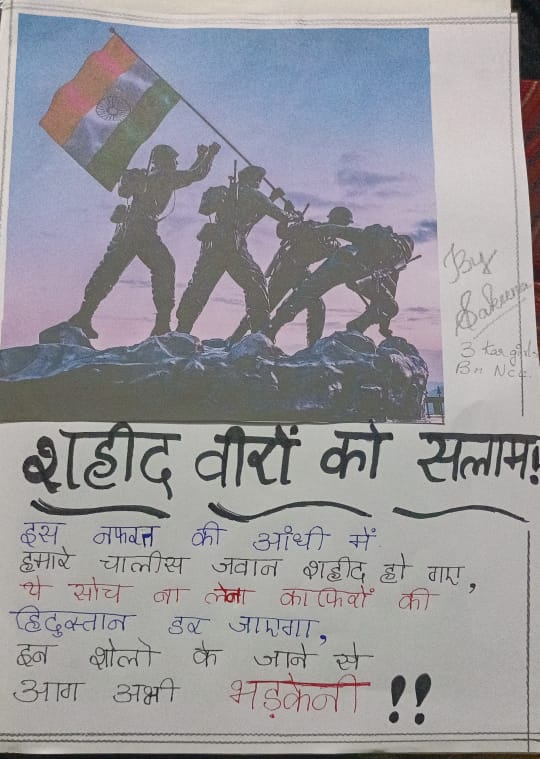 By
Sakeena
3 Kar girl
Bn Ncc.
शहीद वीरों को सलाम!
इस नफरत की आंधी में
हमारे चालीस जवान शहीद हो गए,
ये सोच ना लेना काफिरों की
हिंदुस्तान डर जाएगा,
इन शोलो के जाने से
आग अभी भड़केगी !!